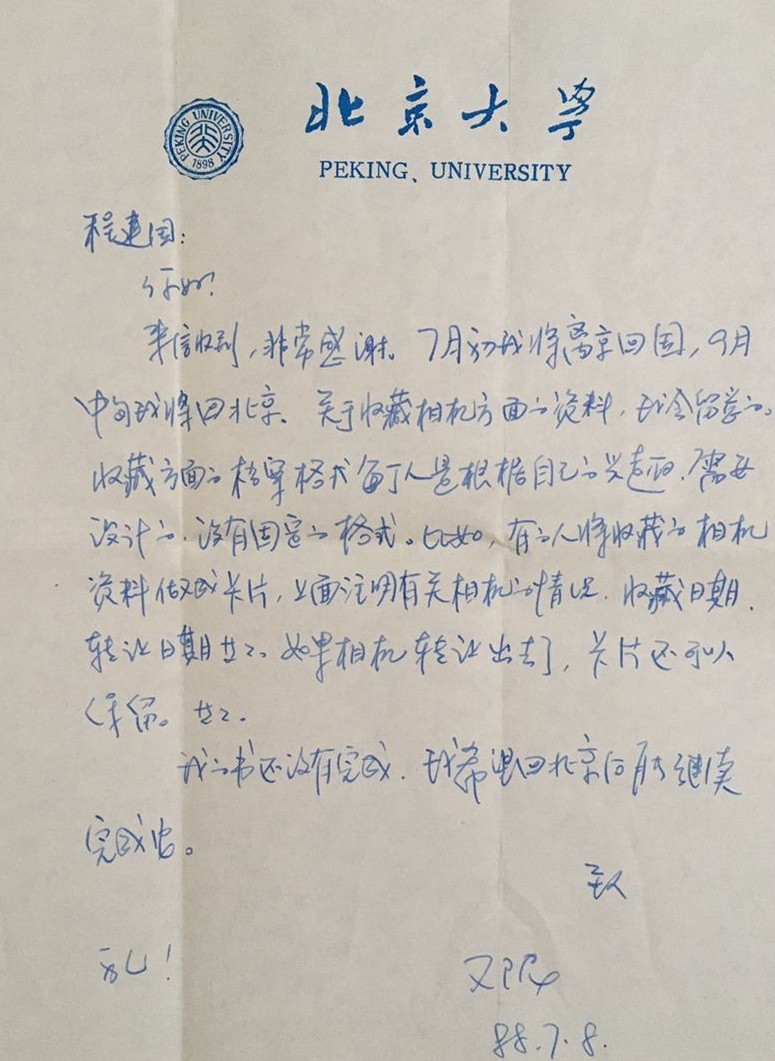 北京大学
PEKING UNIVERSITY 1898
PEKING, UNIVERSITY
程建国:
你好!
来信收到,非常感谢。7月初我将离京回国,9月
中旬我将回北京。关于收藏相机方面的资料,我会留意的。
收藏方面的档案格式每个人是根据自己的兴趣、需要
设计的,没有固定的格式。比如,有的人将收藏的相机
资料做成卡片,上面注明有关相机的情况,收藏日期,
转让日期等等。如果相机转让出去了,卡片还可以
保留。等等。
我的书还没有完成,我希望回北京后能继续
完成它。
致
礼!
88.7.8.